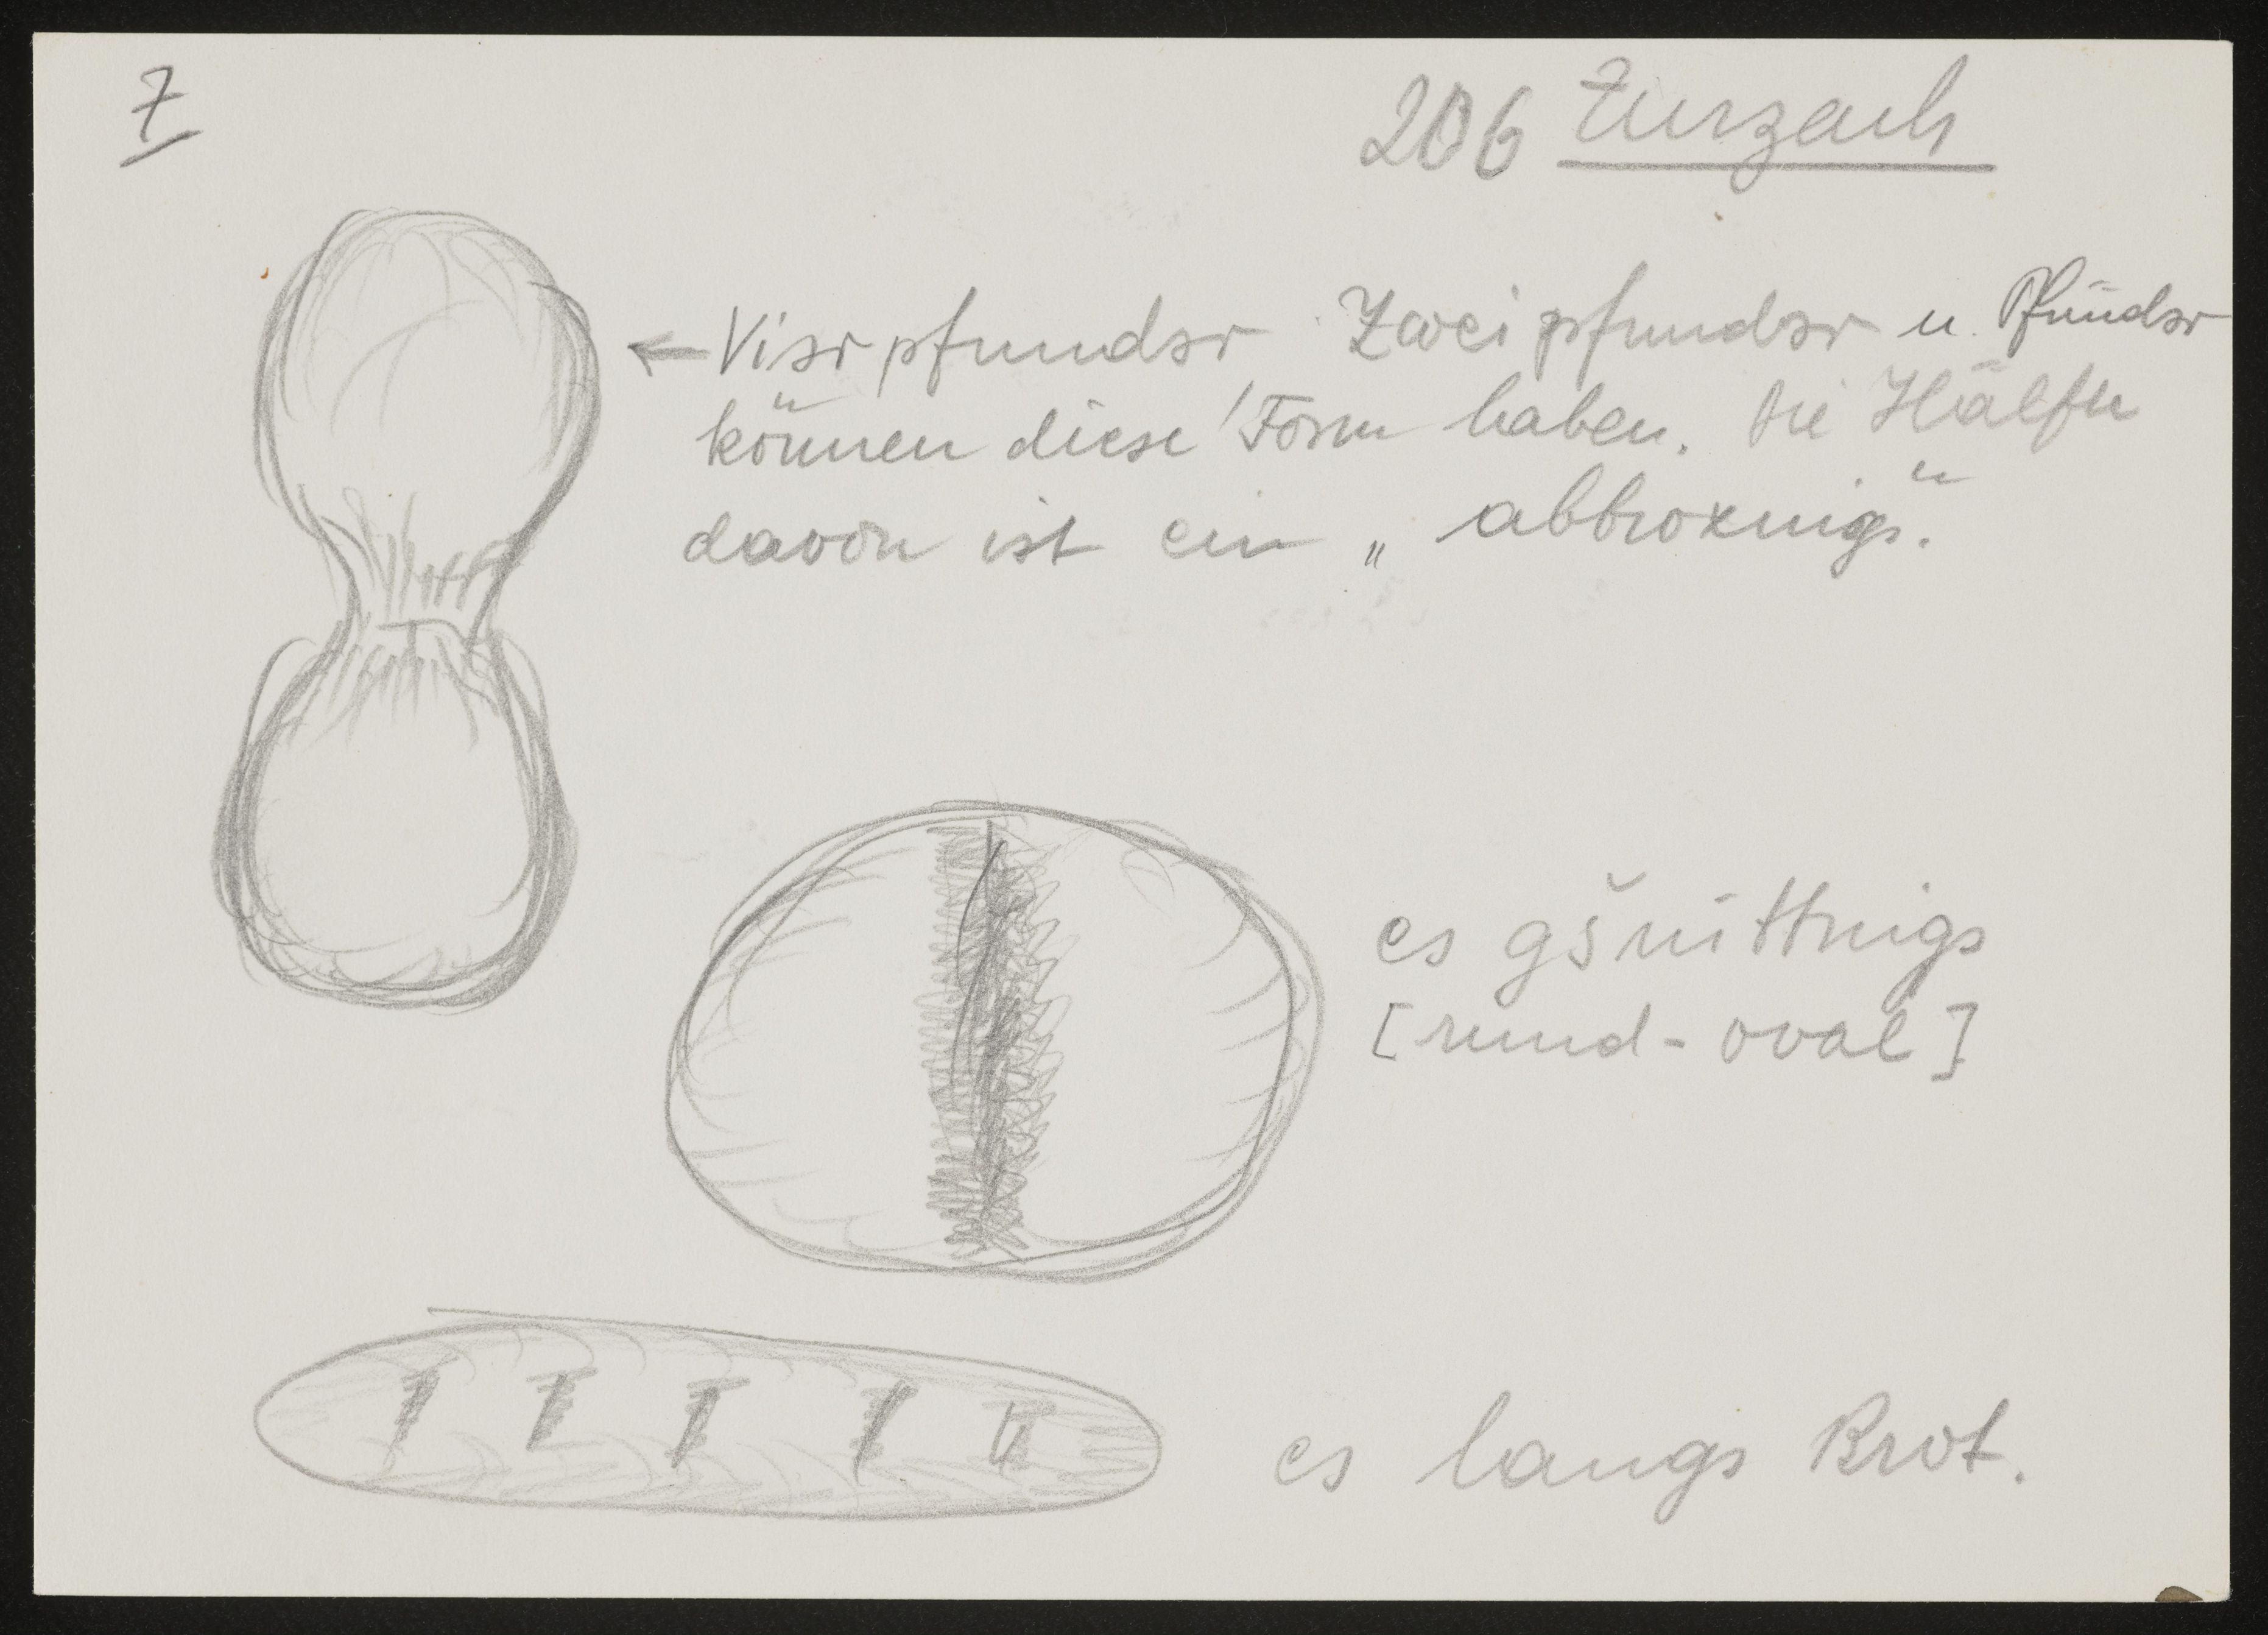 7
206 Zurzach
← Vierpfunder Zweipfunder u. Pfünder
können diese Form haben. Die Hälfte
davon ist ein „abbroxnigs."
es gšnittnigs
[rund-oval]
es langs Brot.